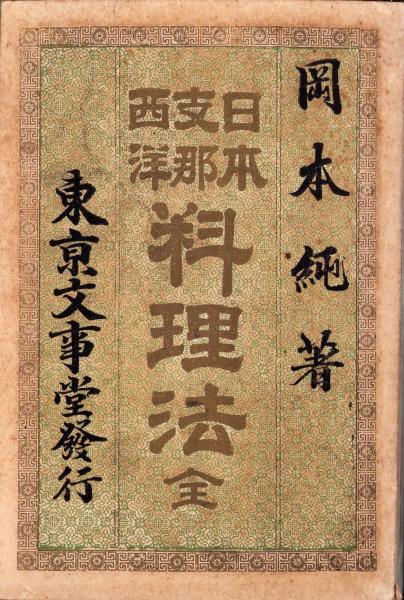 岡本純著
日本
支那
西洋
料理法全
東京文事堂發行